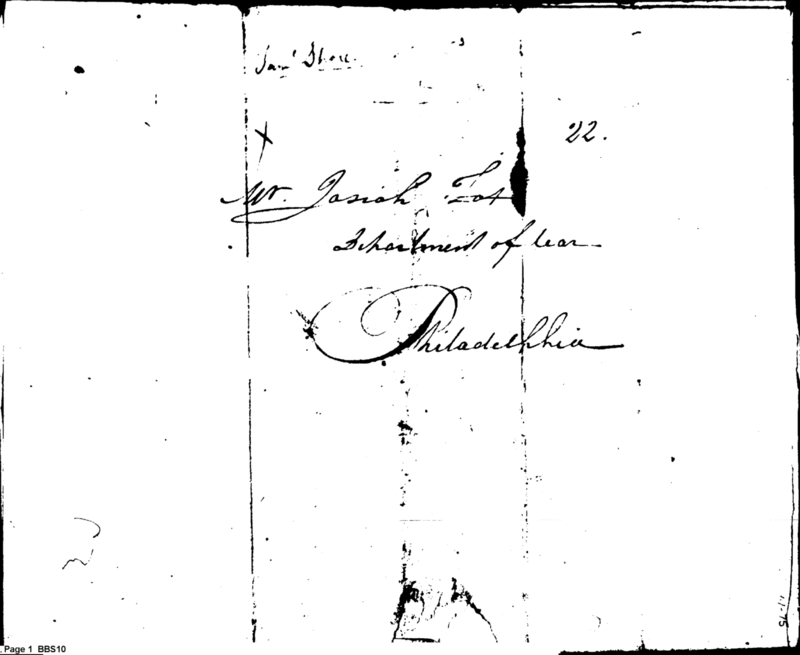 Saml Shore.
22.
Mr. Josiah Fox
Department of War
Philadelphia
Page 1 BBS10